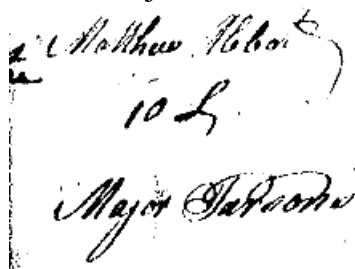 Matthew
10 L
Major Parsons